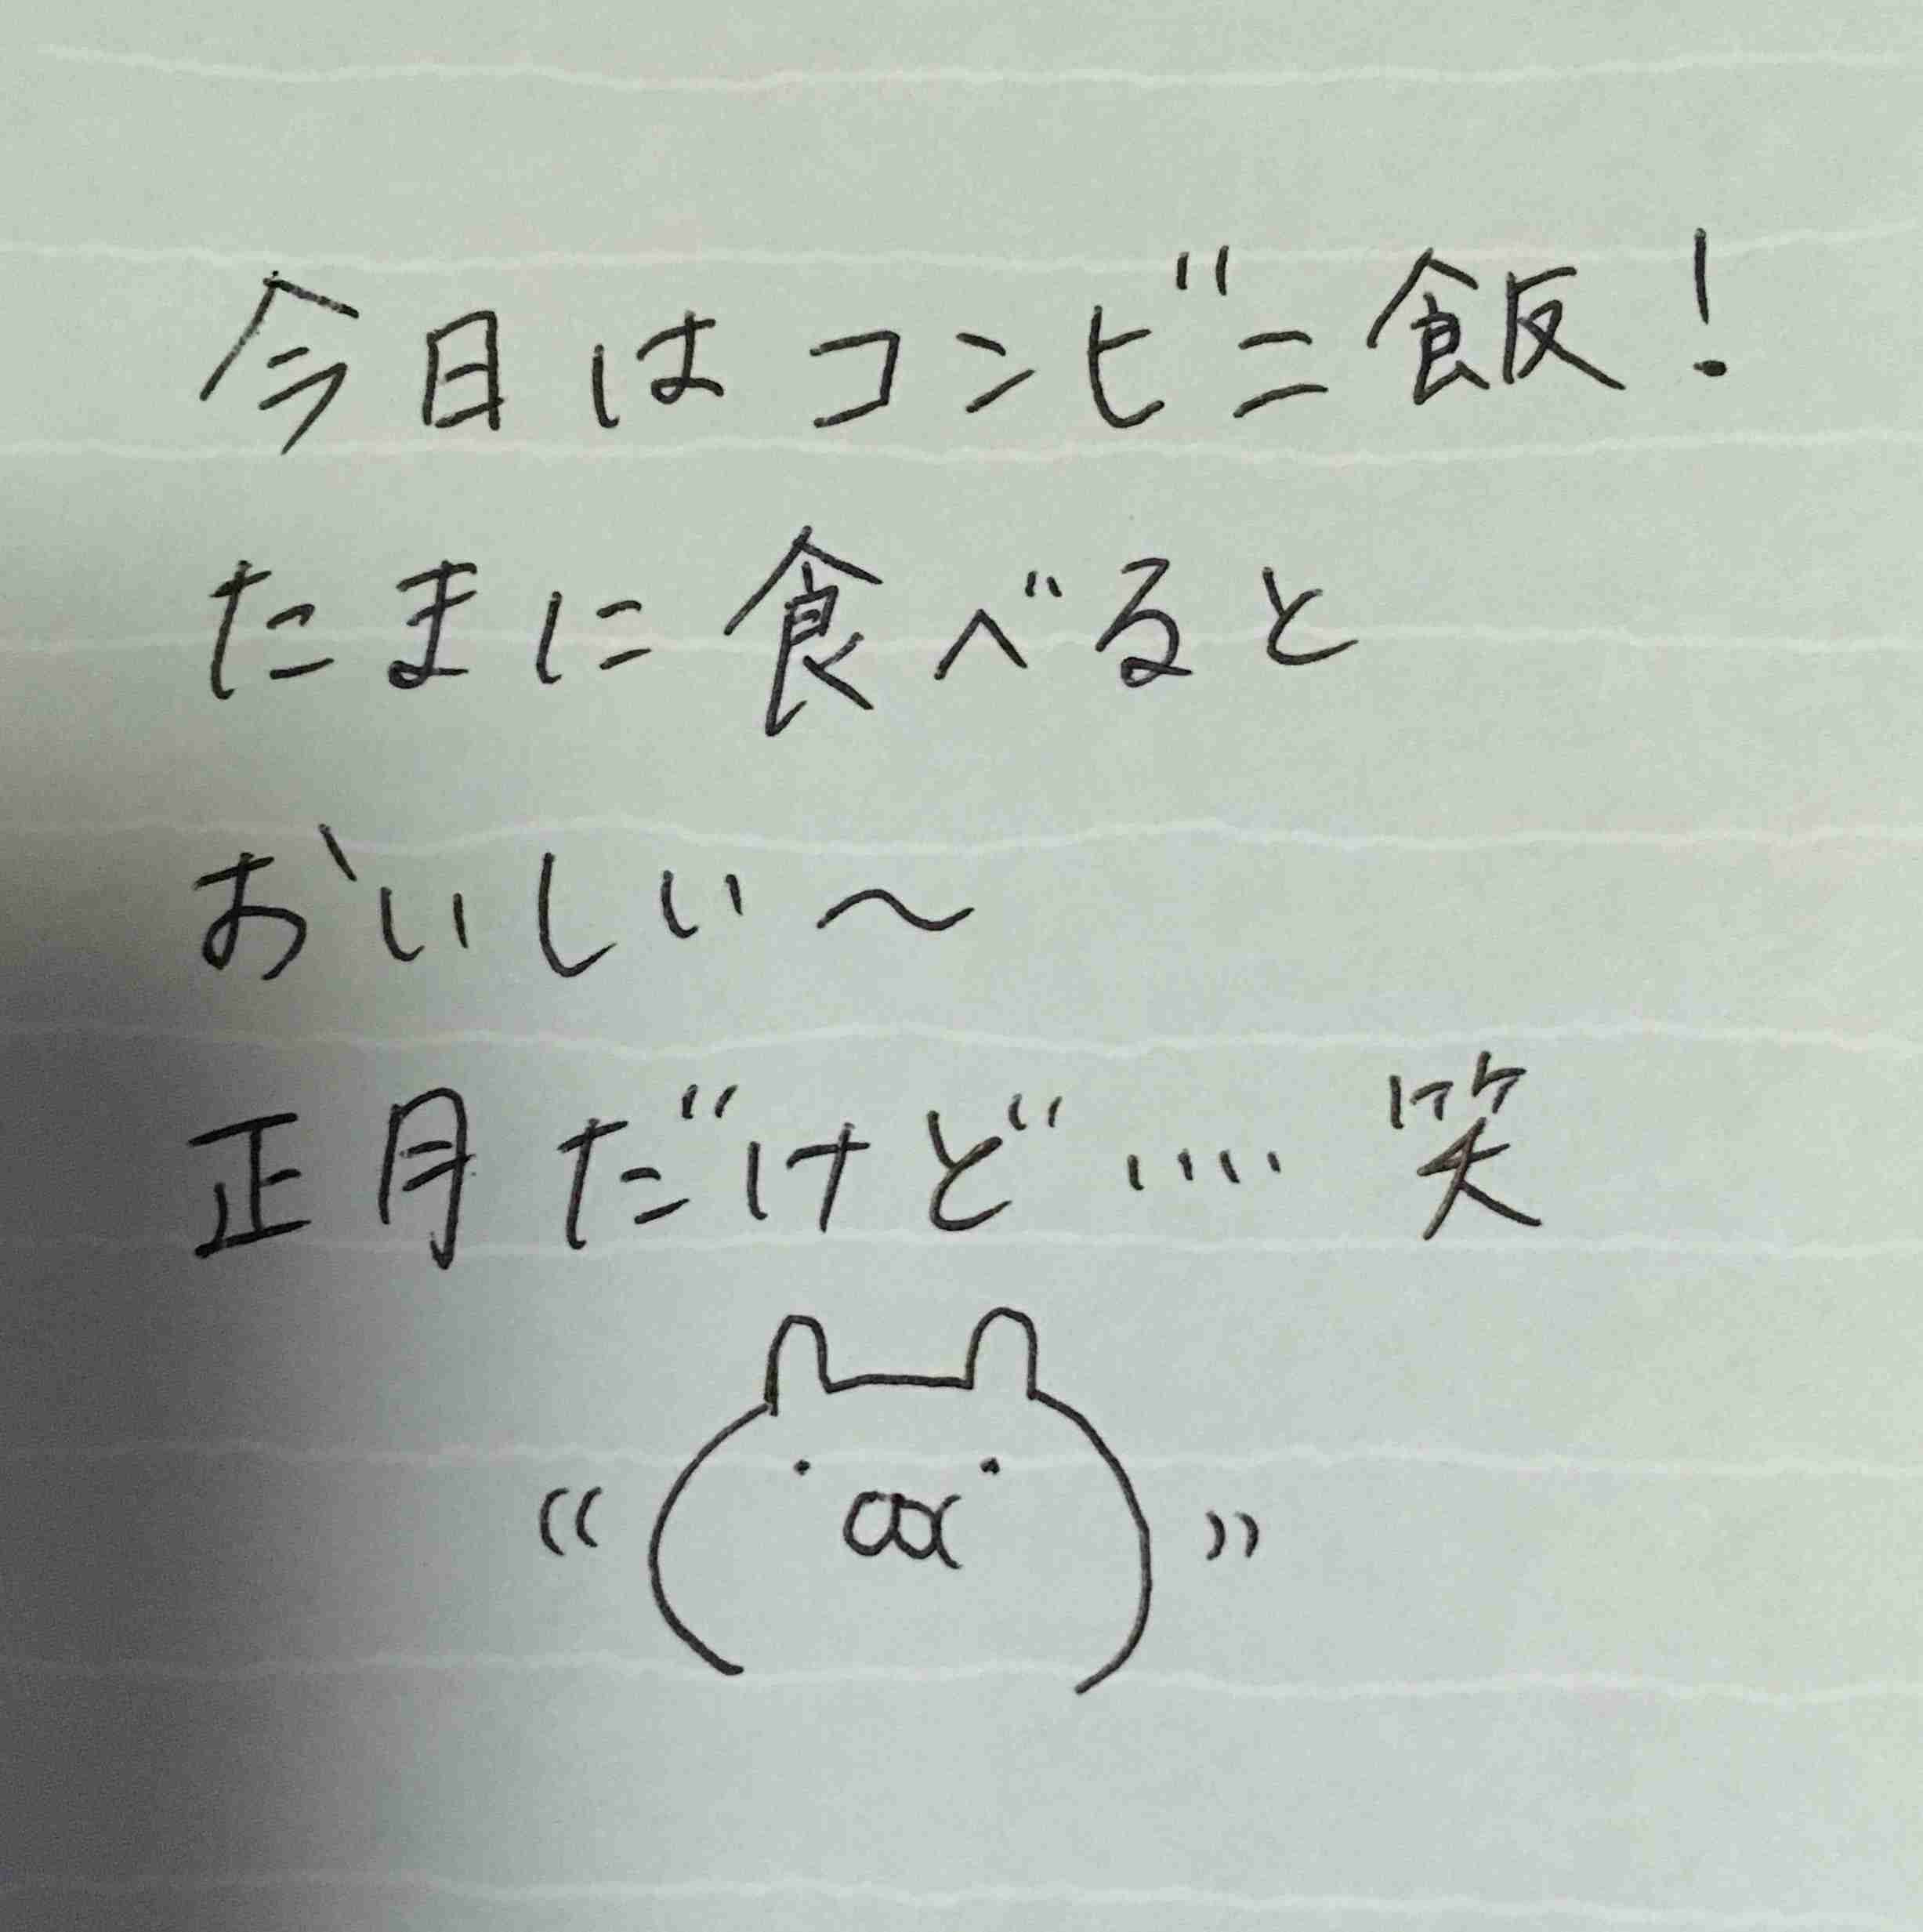 今日はコンビニ飯!
たまに食べると
おいしい〜
正月だけど....笑